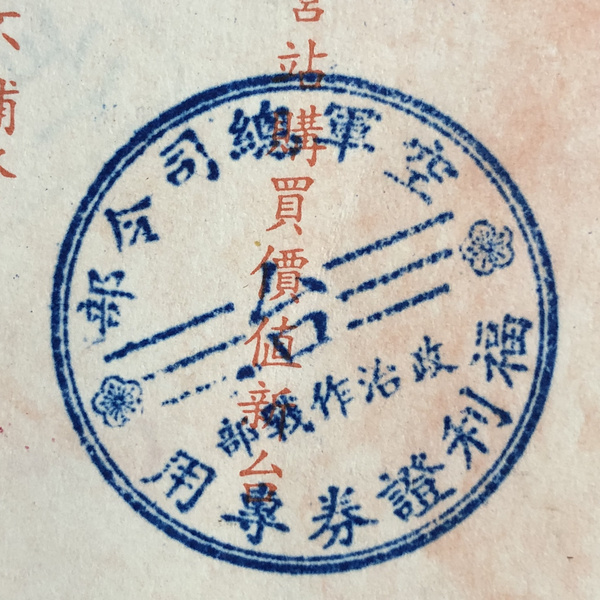 站購買價值新台
空軍總司令部
政治作戰部
福利證券專用